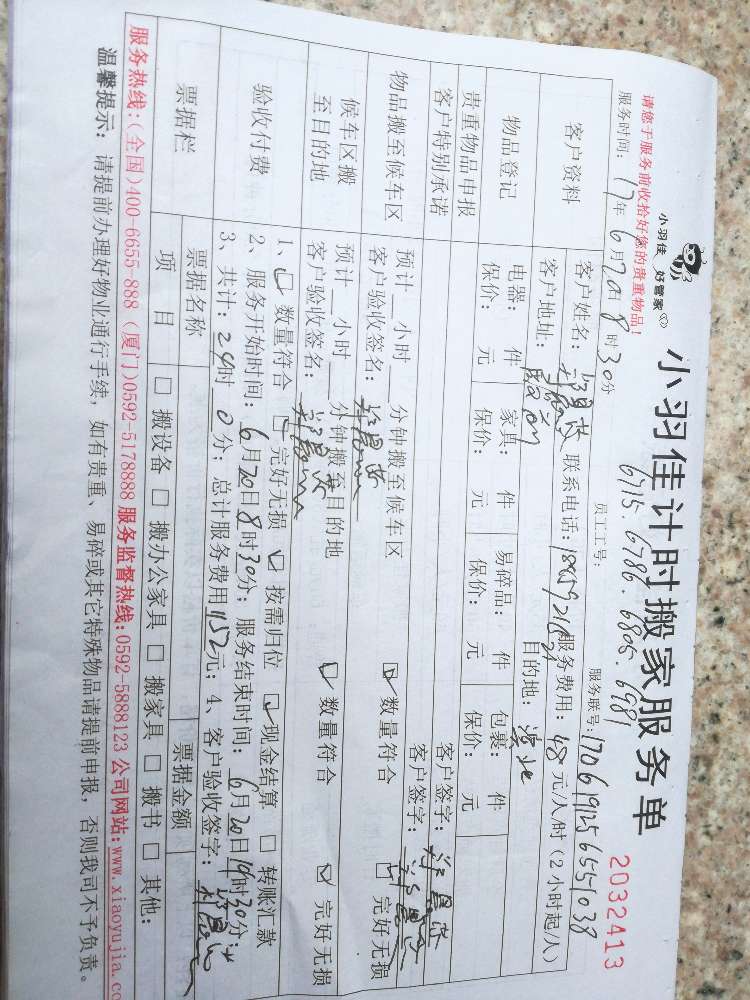 小羽佳 好管家
小羽佳计时搬家服务单
2032413
请您于服务前收拾好您的贵重物品!
员工工号: 6715. 6786. 6805. 6981
服务时间: 17年 6月20日 8时30分
服务联号: 1706191256551038
客户资料
客户姓名: 联系电话: 服务费用: 48元/人/时(2小时起/人)
客户地址: 目的地:
物品登记
电器: 件 家具: 件 易碎品: 件 包裹: 件
保价: 元 保价: 元 保价: 元 保价: 元
贵重物品申报 客户签字:
客户特别承诺 客户签字:
物品搬至候车区
预计__小时__分钟搬至候车区
客户验收签名: 数量符合 完好无损
候车区搬至目的地
预计__小时__分钟搬至目的地
客户验收签名: 数量符合 完好无损
验收付费
1、数量符合 完好无损 按需归位 现金结算 转账汇款
2、服务开始时间: 6月20日8时30分; 服务结束时间: 6月20日 时30分;
3、共计: 24时 0分; 总计服务费用1152元; 4、客户验收签字:
票据栏
票据名称 票据金额
项目 搬设备 搬办公家具 搬家具 搬书 其他:
服务热线:(全国)400-6655-888 (厦门)0592-5178888 服务监督热线:0592-5888123 公司网站:www.xiaoyujia.co
温馨提示: 请提前办理好物业通行手续, 如有贵重、易碎或其它特殊物品请提前申报, 否则我司不予负责。